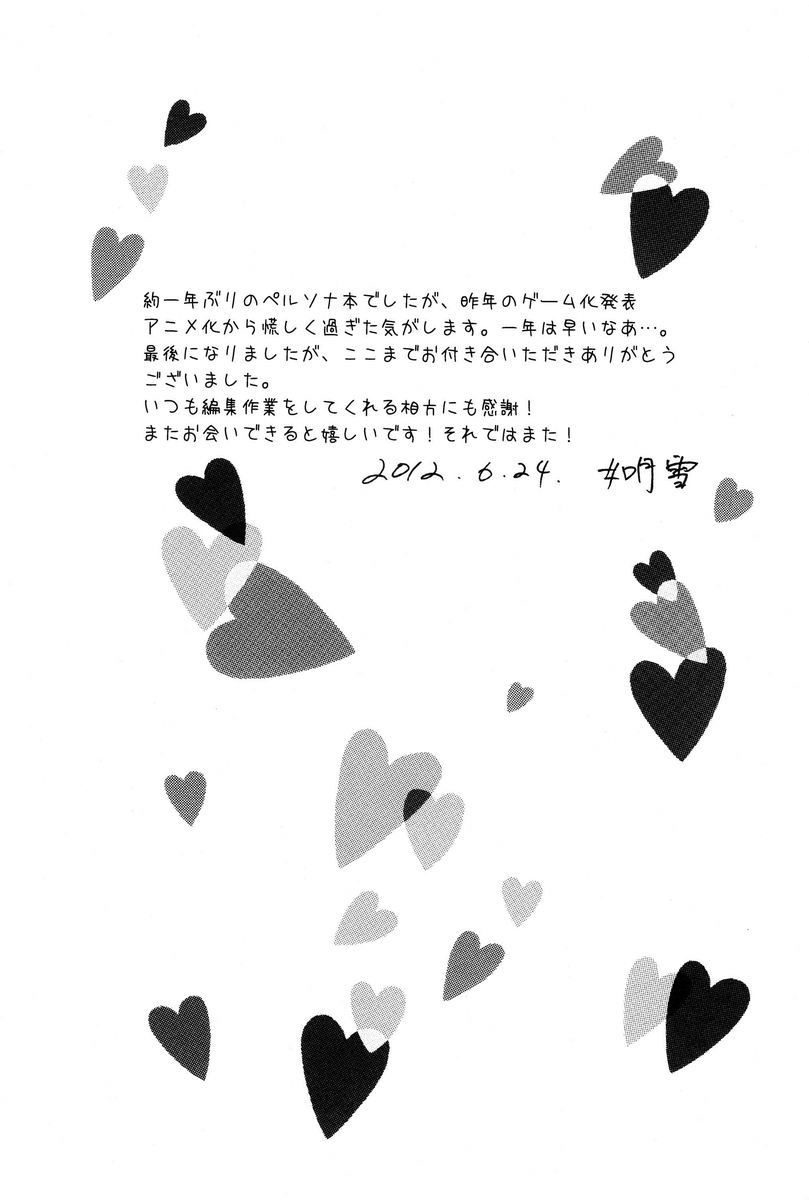 約一年ぶりのペルソナ本でしたが、昨年のゲーム化発表
アニメ化から慌しく過ぎた気がします。一年は早いなあ…。
最後になりましたが、ここまでお付き合いただきありがとう
ございました。
いつも編集作業をしてくれる相方にも感謝！
またお会いできると嬉しいです！それではまた！
2012.6.24.